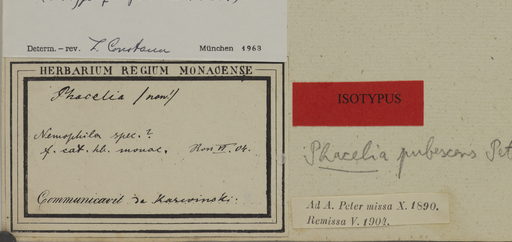 Determ. – rev. L. Constance München 1963
HERBARIUM REGIUM MONACENSE
Phacelia (non!)
Nemophila spec.?
f. cat. hb. monac. Mon. VI. 04.
Communicavit de Karwinski.
ISOTYPUS
Phacelia pubescens Pet
Ad A. Peter missa X. 1890.
Remissa V. 1904.